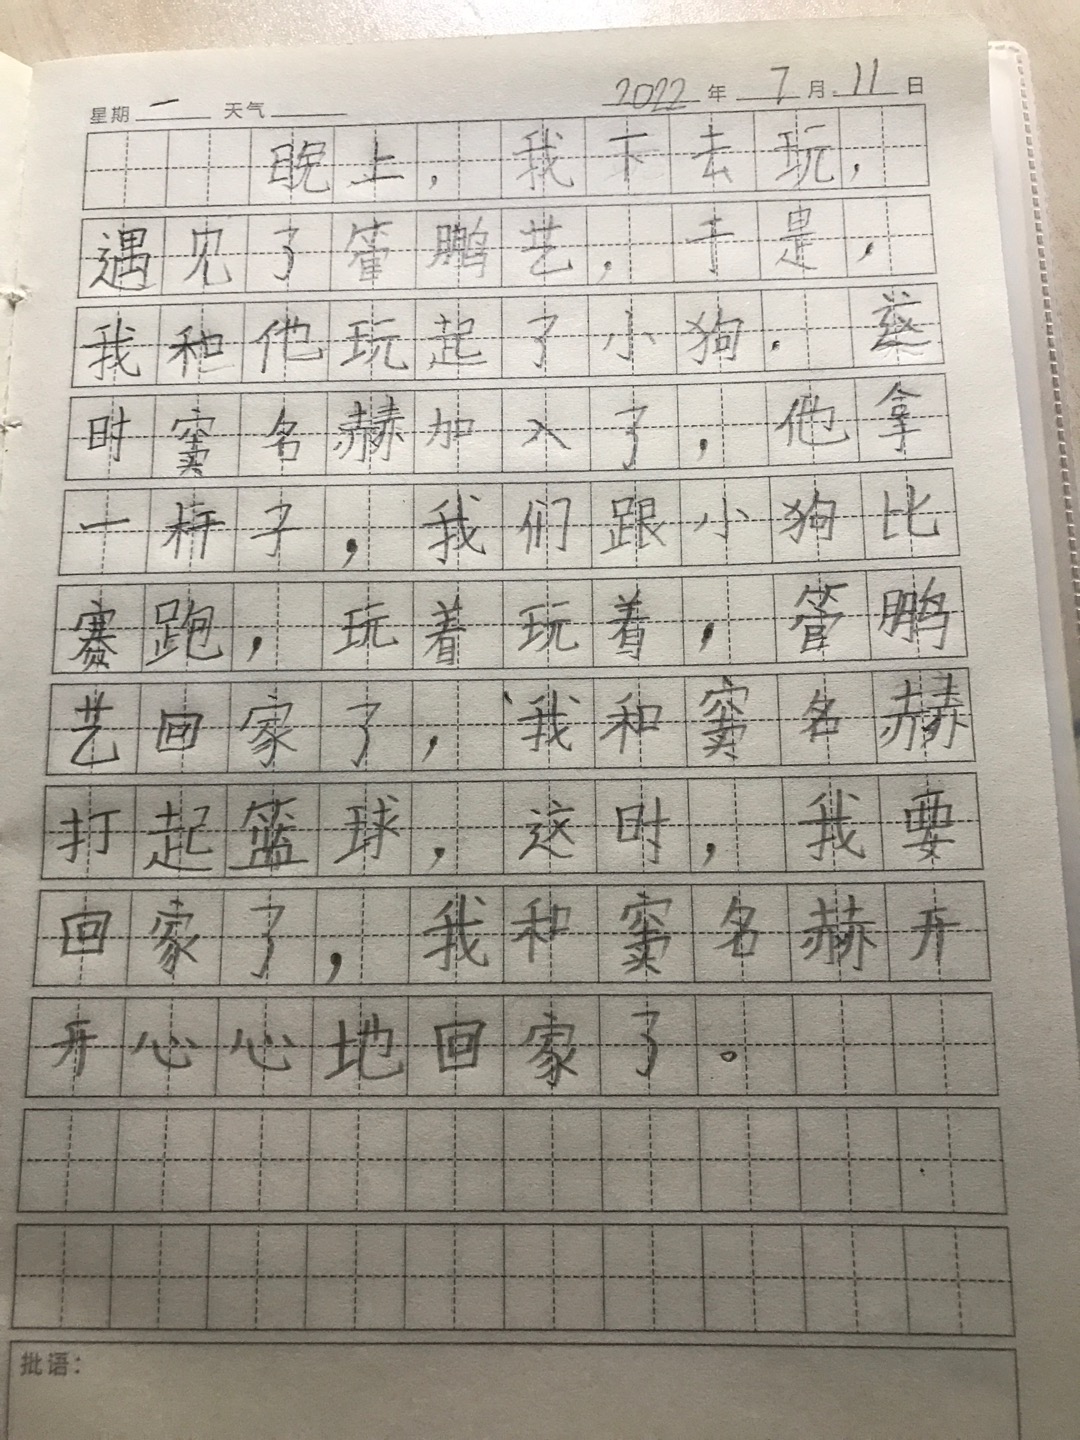 星期 一 天气 2022 年 7 月 11 日
晚上，我下去玩，
遇见了管鹏艺，于是，
我和他玩起了小狗.
时窦名赫加入了，他拿
一杆子，我们跟小狗比
赛跑，玩着玩着，管鹏
艺回家了，我和窦名赫
打起篮球，这时，我要
回家了，我和窦名赫开
开心心地回家了。
批语：